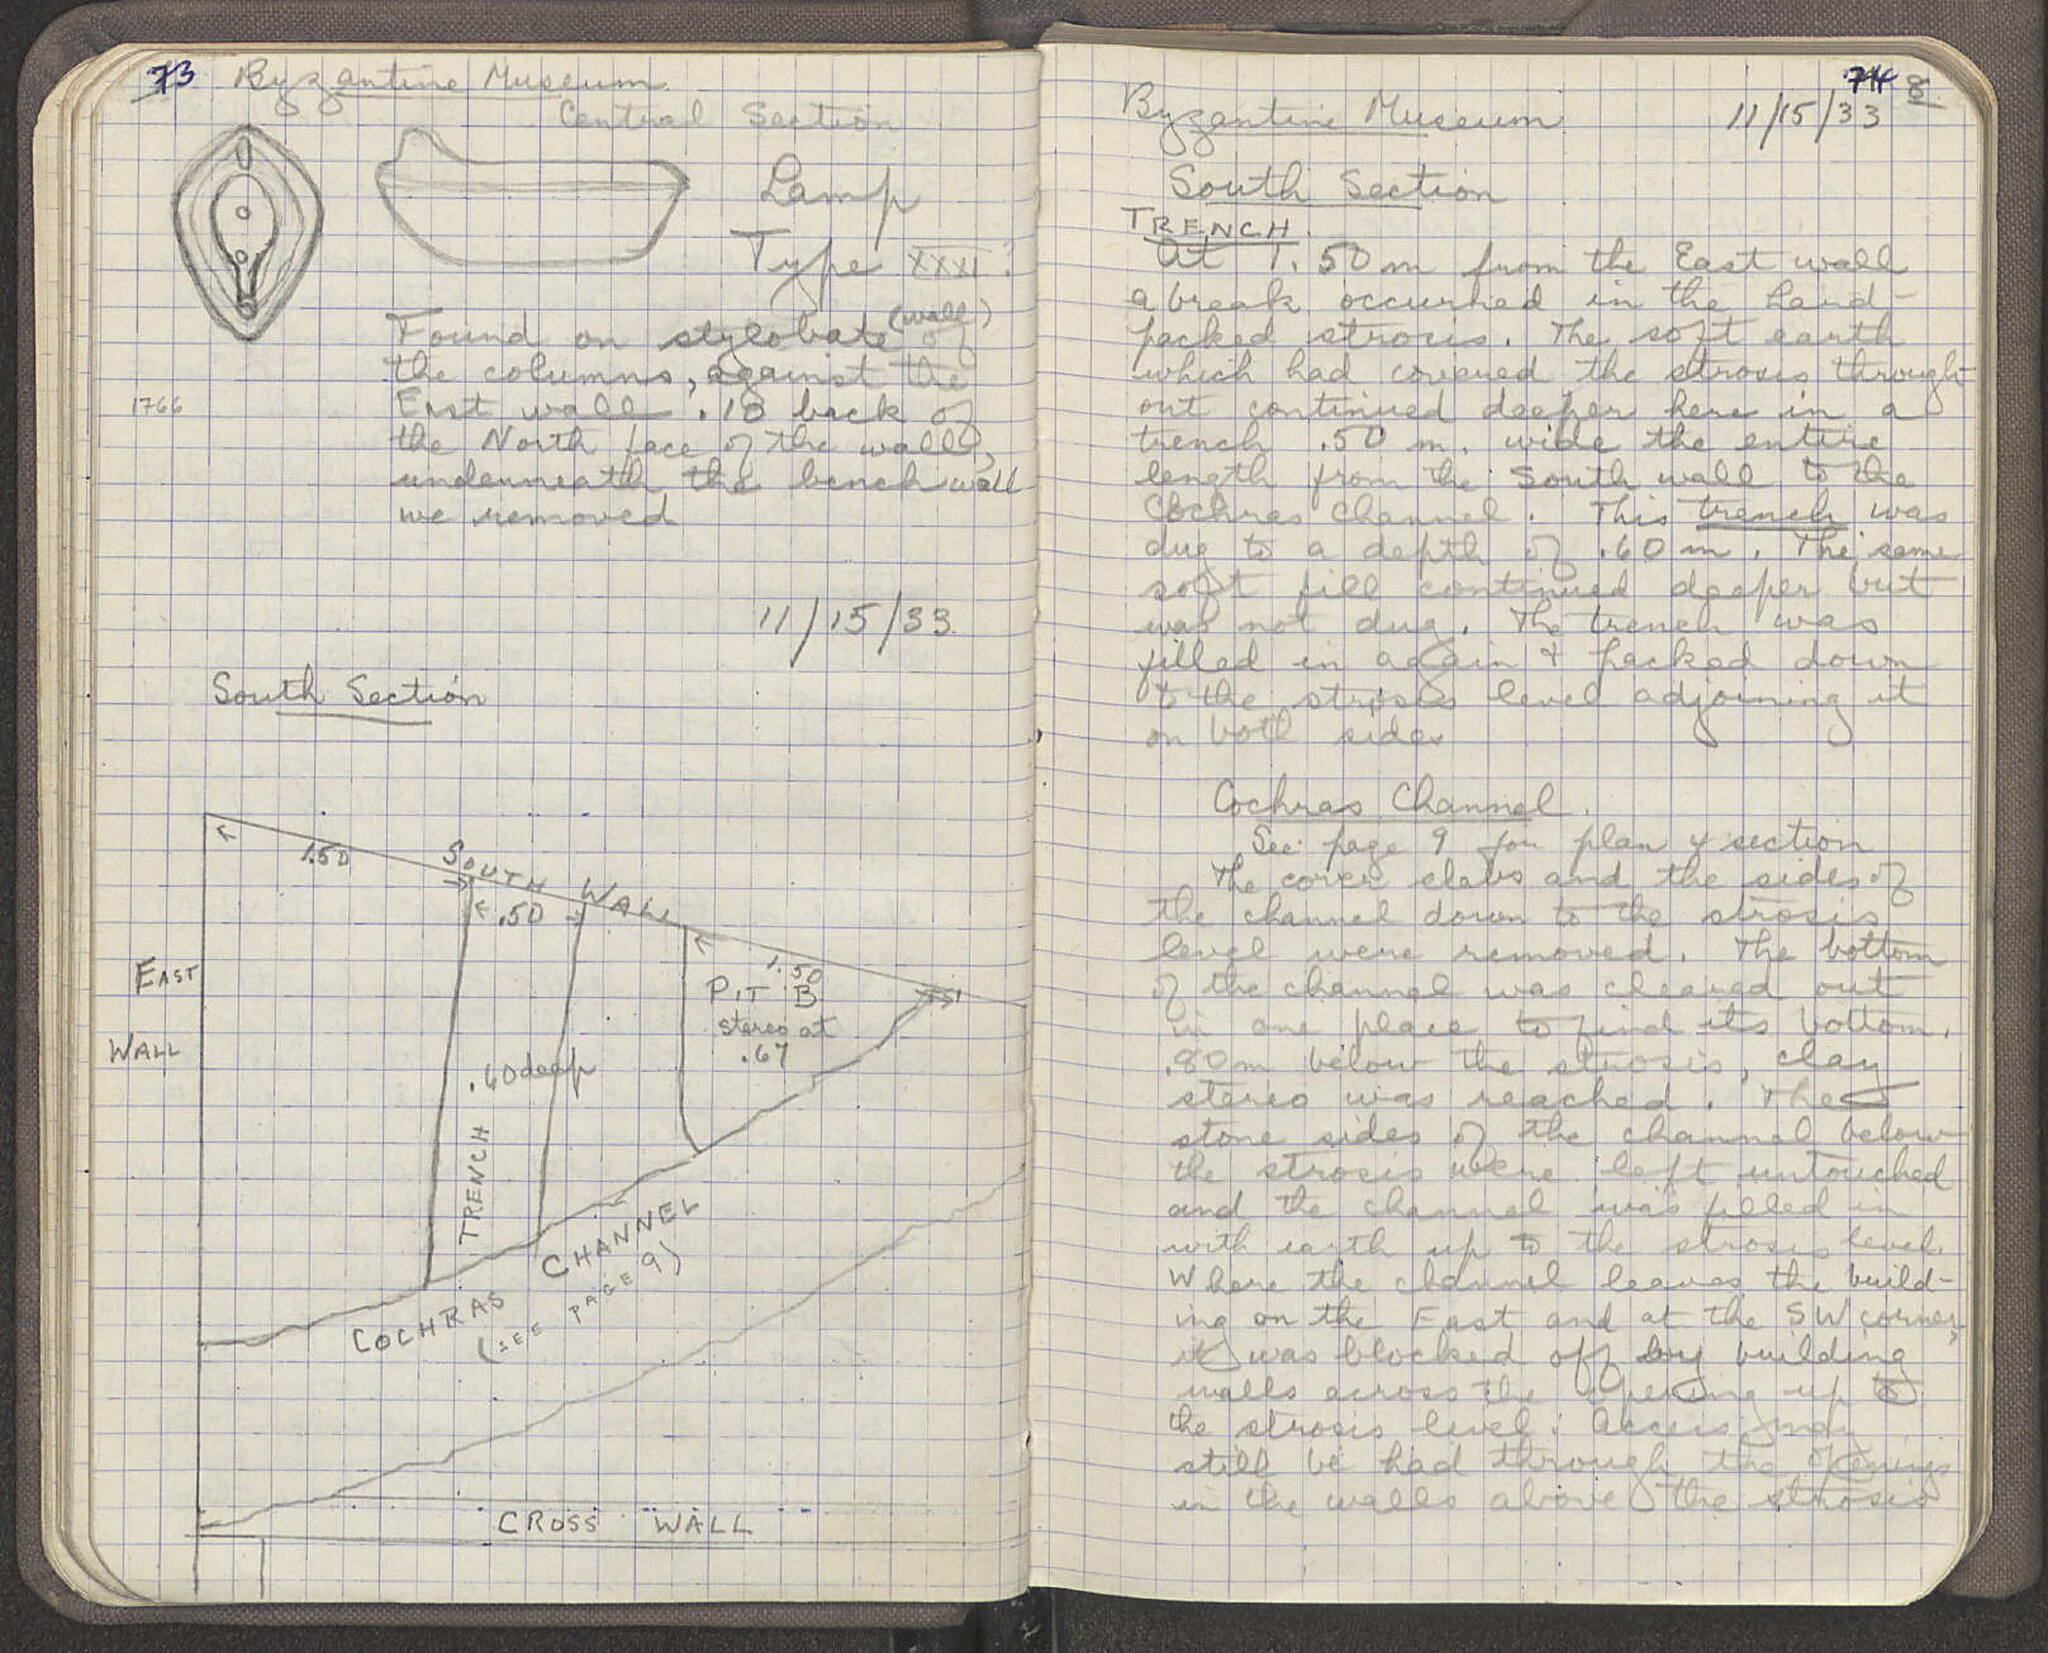 73 Byzantine Museum
Central Section
Lamp
Type XXXI?
(wall)
Found on stylobate of
the columns, against the
1766
East wall .10 back of
the North face of the wall,
underneath the bench wall
we removed
11/15/33
South Section
1.50
SOUTH WALL
.50
1.50
EAST
WALL
PIT B
stereo at
.67
.60 deep
TRENCH
COCHRAS CHANNEL
(SEE PAGE 9)
CROSS WALL
74 8
Byzantine Museum
11/15/33
South Section
TRENCH.
At 1.50 m from the East wall
a break occurred in the hard-
packed strosis. The soft earth
which had covered the strosis through-
out continued deeper here in a
trench .50 m. wide the entire
length from the South wall to the
Cochras Channel. This trench was
dug to a depth of .60 m. The same
soft fill continued deeper but
was not dug. The trench was
filled in again & packed down
to the strosis level adjoining it
on both sides
Cochras Channel.
See page 9 for plan & section
The cover slabs and the sides of
the channel down to the strosis
level were removed. The bottom
of the channel was cleaned out
in one place to find its bottom.
.80m below the strosis, clay
stereo was reached. The
stone sides of the channel below
the strosis were left untouched
and the channel was filled in
with earth up to the strosis level.
Where the channel leaves the build-
ing on the East and at the SW corner,
it was blocked off by building
walls across the opening up to
the strosis level. Access may
still be had through the openings
in the walls above the strosis